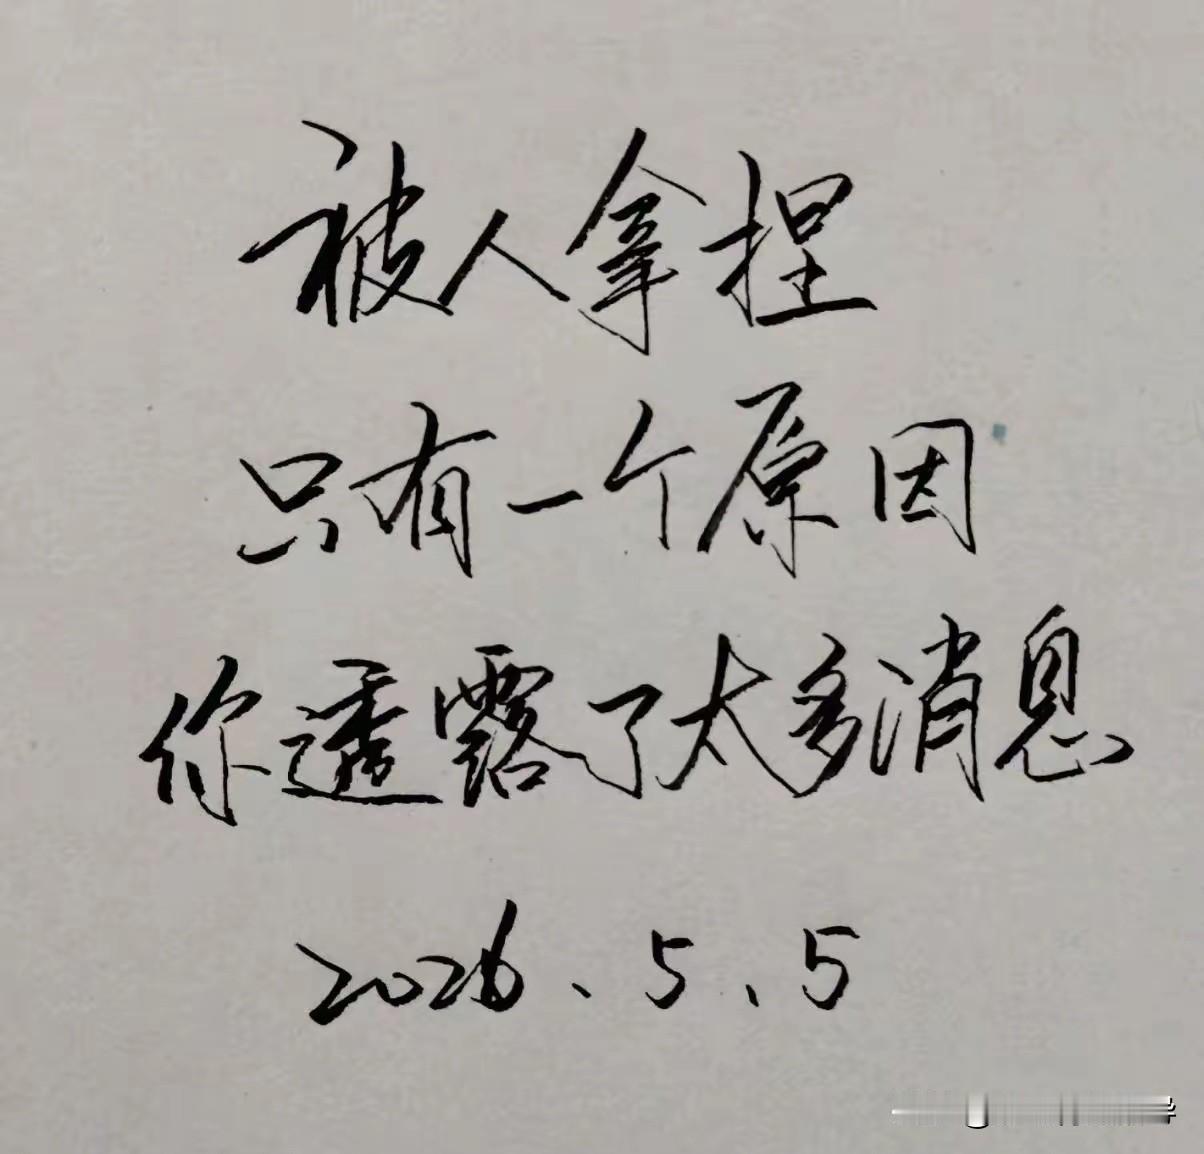 被人拿捏
只有一个原因
你透露了太多消息
2026、5、5